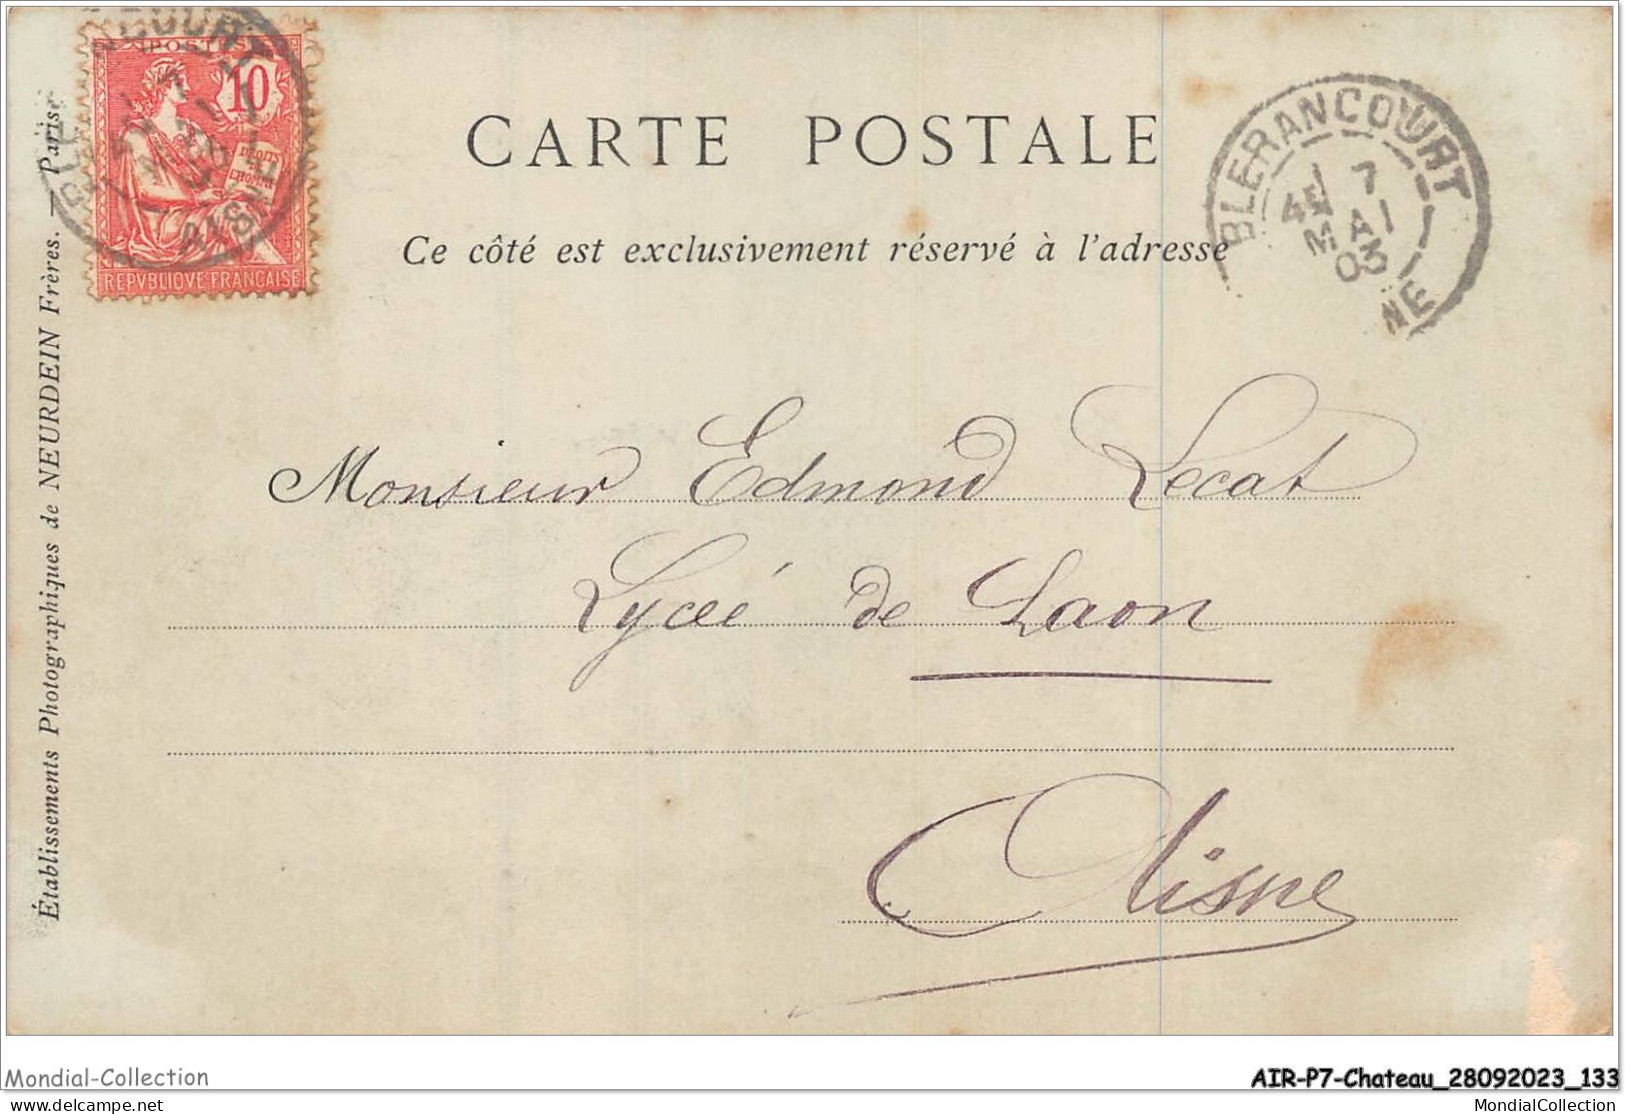 POSTES
10
DROITS
DE
L'HOMME
REPVBLIQVE FRANÇAISE
AISNE
CARTE POSTALE
Ce côté est exclusivement réservé à l'adresse
BLERANCOURT
7
MAI
03
NE
Établissements Photographiques de NEURDEIN Frères. — Paris
Monsieur Edmond Lecat
Lycée de Laon
Aisne
Mondial-Collection
AIR-P7-Chateau_28092023_133
delcampe.net
MondialCollection